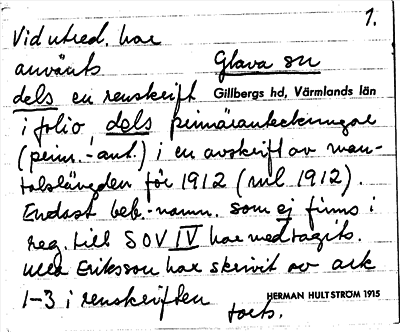 1.
Vid utred. har
använts Glava sn
dels en renskrift Gillbergs hd, Värmlands län
i folio, dels primäranteckningar
(prim.-ant.) i en avskrift av man-
talslängden för 1912 (ml 1912).
Endast beb.-namn. som ej finns i
reg. till SOV IV har medtagits.
Ulla Eriksson har skrivit av ark
1-3 i renskriften HERMAN HULTSTRÖM 1915
forts.